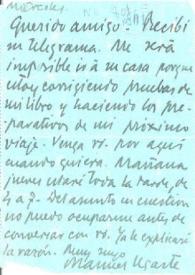 miércoles
Querido amigo - Recibí
su telegrama. Me será
imposible ir á su casa porque
estoy corrigiendo pruebas de
mi libro y haciendo los pre-
parativos de mi próximo
viaje. Venga vd. por aquí
cuando quiera. Mañana
jueves estaré toda la tarde, de
4 a 7. Del asunto en cuestión
no puedo ocuparme antes de
conversar con vd. Ya le explicaré
la razón. Muy suyo
Manuel Ugarte